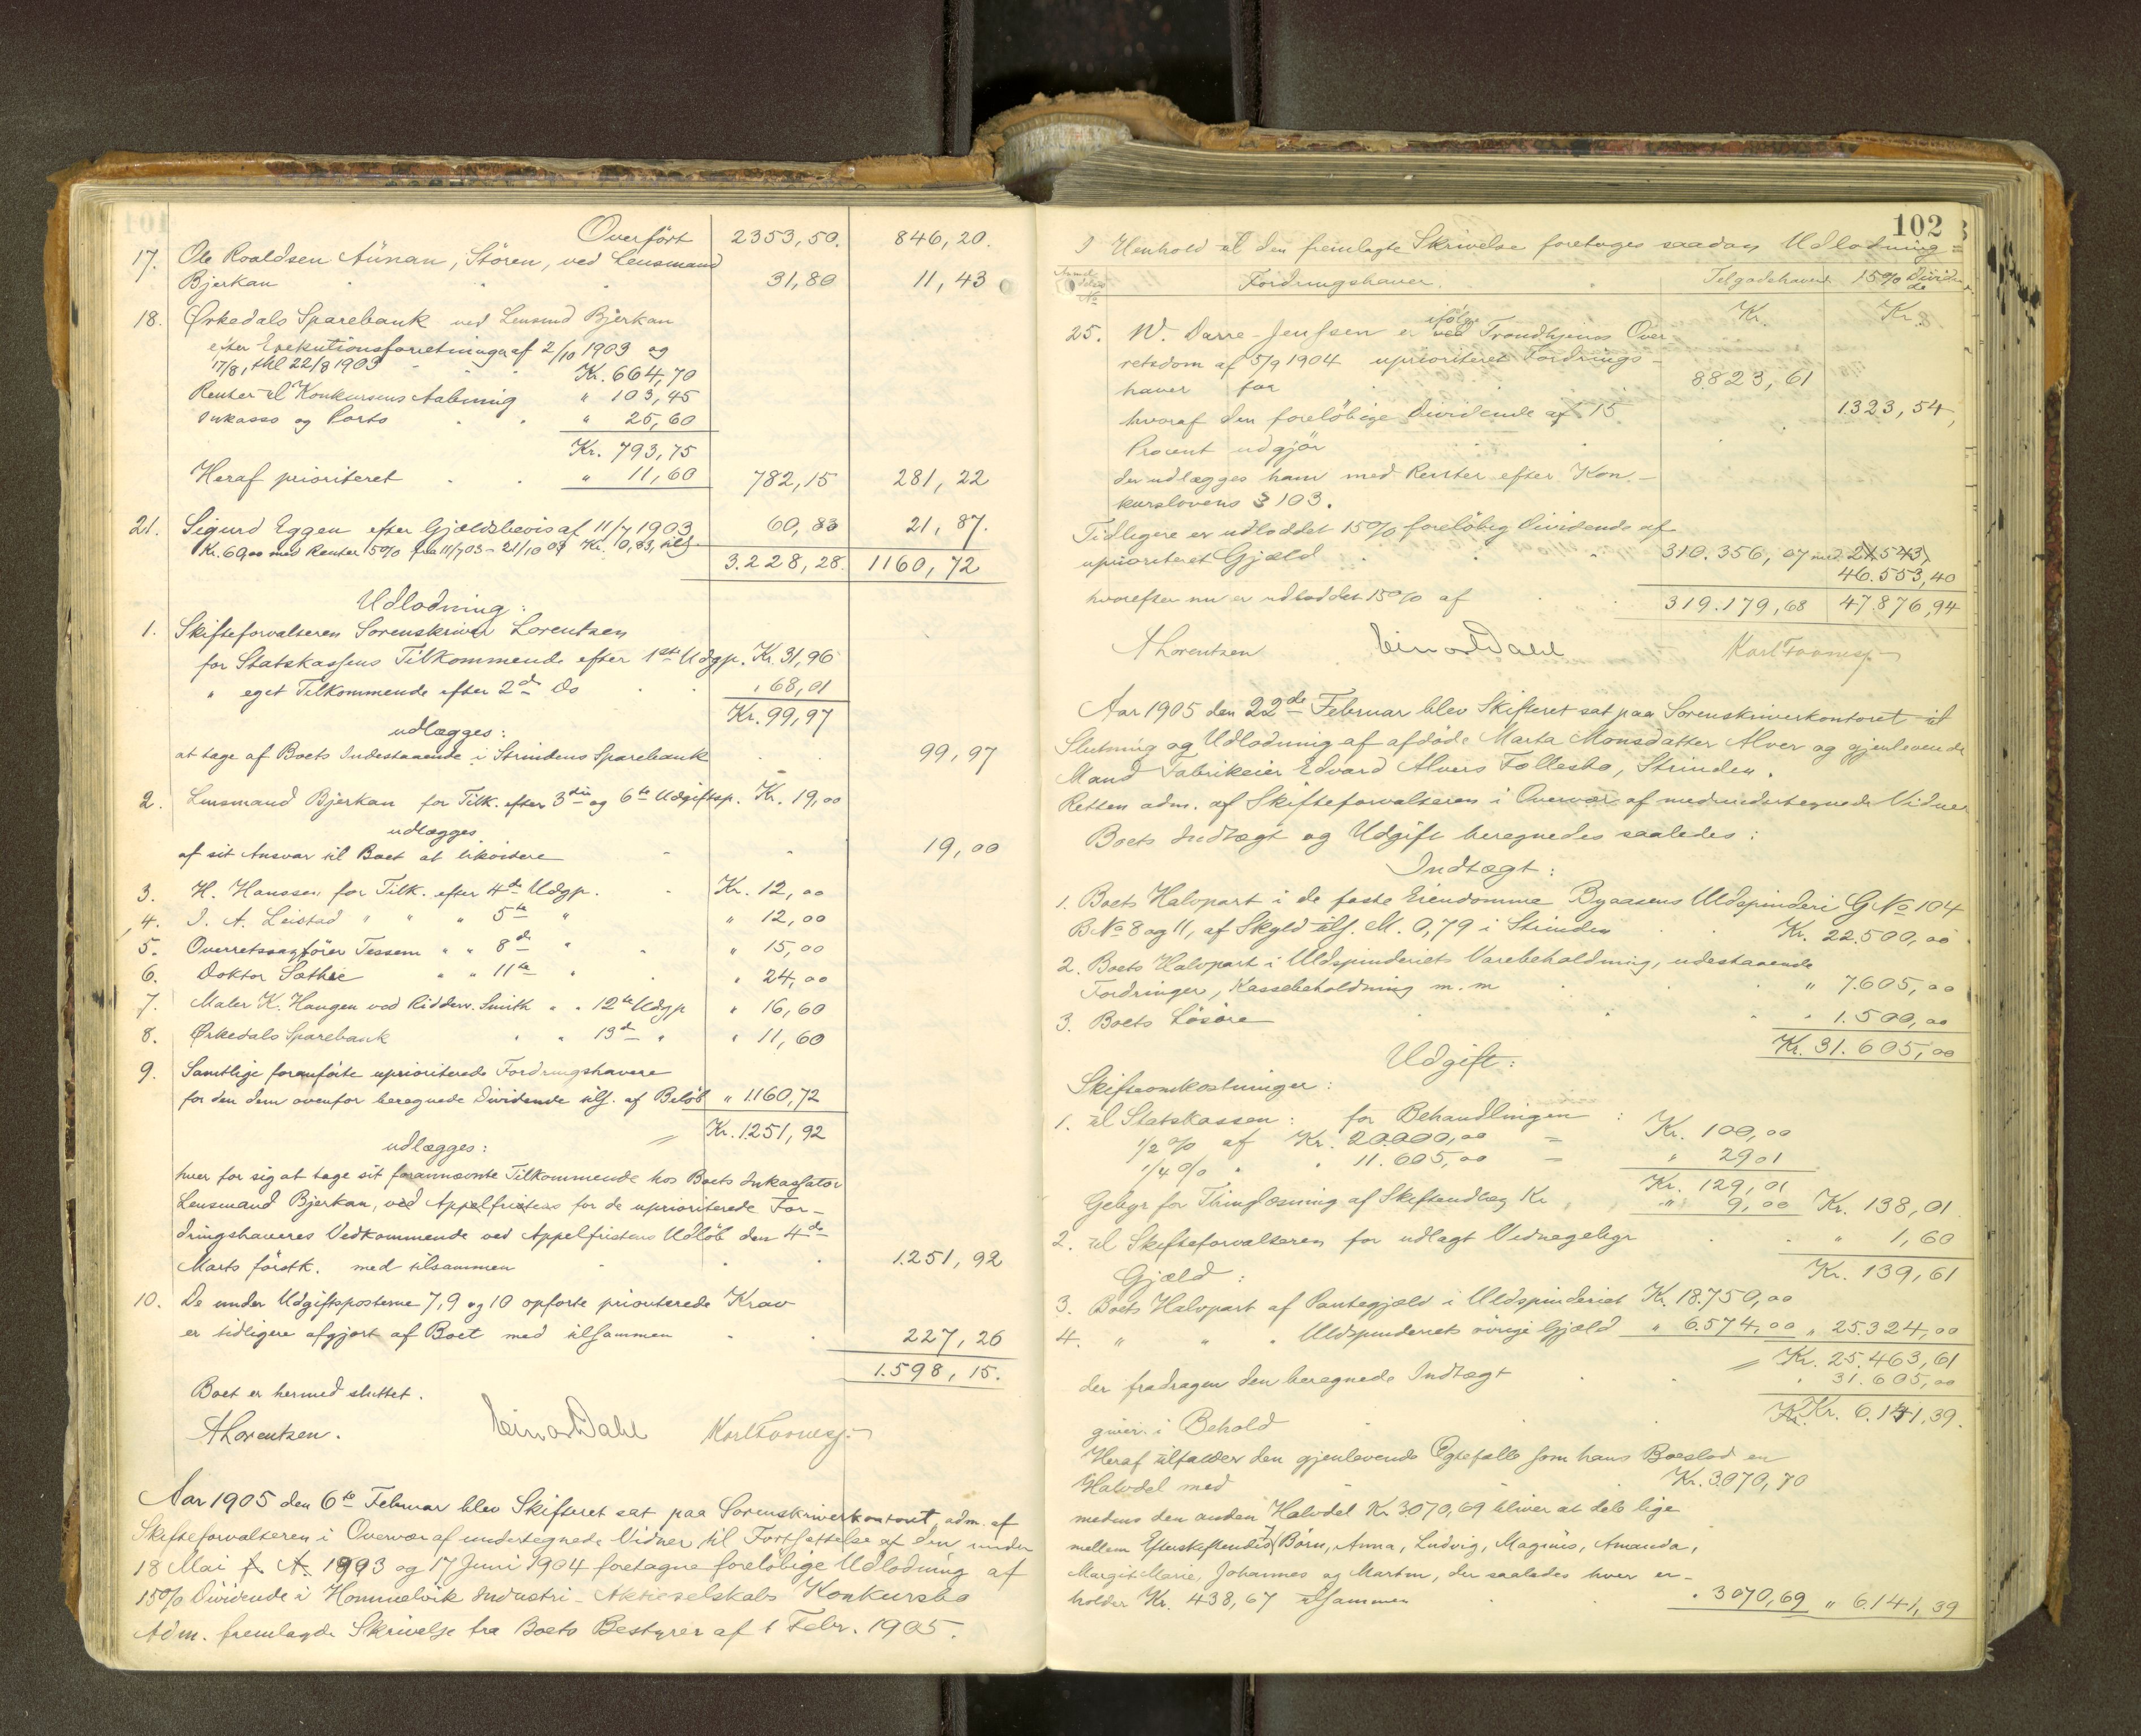 Overført 2353,50. 846,20.
17. Ole Roaldsen Aünan, Stören, ved Lensmand
Bjerkan 31,80 11,43
18. Ørkedals Sparebank ved Lensmd Bjerkan
efter Exekutionsforretninger af 2/10 1903 og
17/8, thl 22/8 1903 Kr. 664,70
Renter til Konkursens Aabning " 103,45
Inkasso og Porto " 25,60
Kr. 793,75
Heraf prioriteret " 11,60 782,15 281,22
21. Sigurd Eggen efter Gjældsbevis af 11/7 1903 60,83 21,87.
Kr. 60,00 med Renter 5% fra 11/7 03 - 21/10 03 Kr. 0,83, tils.
3.228,28. 1160,72
Udlodning:
1. Skifteforvalteren Sorenskriver Lorentzen
for Statskassens Tilkommende efter 1ste Udgp. Kr. 31,96
" eget Tilkommende efter 2den Do " 68,01
Kr. 99,97
udlægges:
at tage af Boets Indestaaende i Strindens Sparebank 99,97
2. Lensmand Bjerkan for Tilk. efter 3die og 6te Udgiftsp. Kr. 19,00
udlægges
af sit Ansvar til Boet at likvidere 19,00
3. H. Hanssen for Tilk. efter 4de Udgp. Kr. 12,00
4. I. A. Leistad " " " 5te " " 12,00
5. Overretssagfører Tessem " " 8de " " 15,00
6. Doktor Sæthre " " 11te " " 24,00
7. Maler K. Haugen ved Ridderv. Smith " " 12te Udgp " 16,60
8. Ørkedals Sparebank " " 13de " " 11,60
9. Samtlige foranførte uprioriterede Fordringshavere
for den dem ovenfor beregnede Dividende tils. af Beløb " 1.160,72
Kr. 1.251,92
udlægges:
hver for sig at tage sit forannævnte Tilkommende hos Boets Inkassator
Lensmand Bjerkan, ved Appelfristens for de uprioriterede For-
dringshaveres Vedkommende ved Appelfristens Udløb den 4de
Marts førstk. med tilsammen 1.251,92
10. De under Udgiftsposterne 7, 9 og 10 opførte prioriterede Krav
er tidligere afgjort af Boet med tilsammen 227,26
1.598,15.
Boet er hermed sluttet.
A Lorentzen. Einar Dahl Karl Foosnæs
Aar 1905 den 6te Februar blev Skifteret sat paa Sorenskriverkontoret, adm. af
Skifteforvalteren i Overvær af undertegnede Vidner til Fortsættelse af den under
18 Mai 1903 og 17 Juni 1904 foretagne foreløbige Udlodning af
15% Dividende i Hommelvik Industri-Aktieselskabs Konkursbo
Adm. fremlagde Skrivelse fra Boets Bestyrer af 1 Febr. 1905.
102
I Henhold til den fremlagte Skrivelse foretoges saadan Udlodning
Anmel-delses No Fordringshaver. Tilgodehavende 15% Dividende
Kr. Kr.
25. W. Darre-Jenssen er ifølge ved Trondhjems Over
retsdom af 5/9 1904 uprioriteret Fordrings-
haver for 8.823,61
hvoraf den foreløbige Dividende af 15 1.323,54,
Procent udgjør
der udlægges ham med Renter efter Kon-
kurslovens § 103.
Tidligere er udloddet 15% foreløbig Dividende af
uprioriteret Gjæld 310.356,07 med 21543,
46.553,40
hvorefter nu er udloddet 15% af 319.179,68 47.876,94
A Lorentzen Einar Dahl Karl Foosnæs
Aar 1905 den 22de Februar blev Skifteret sat paa Sorenskriverkontoret til
Slutning og Udlodning af afdøde Marta Monsdatter Alver og gjenlevende
Mand Fabrikeier Edvard Alvers Fællesbo, Strinden.
Retten adm. af Skifteforvalteren i Overvær af medundertegnede Vidner
Boets Indtægt og Udgift beregnedes saaledes:
Indtægt:
1. Boets Halvpart i de faste Eiendomme Byaasens Uldspinderi G No 104
B No 8 og 11, af Skyld tils. M. 0,79 i Strinden Kr. 22.500,00
2. Boets Halvpart i Uldspinderiets Varebeholdning, udestaaende
Fordringer, Kassebeholdning m. m " 7.605,00
3. Boets Løsøre " 1.500,00
Kr. 31.605,00
Udgift:
Skifteomkostninger:
1. til Statskassen: for Behandlingen :
1/2 % af Kr. 20.000,00 = Kr. 100,00
1/4 % " " 11.605,00 = " 29,01
Kr. 129,01
Gebyr for Thinglæsning af Skifteudlæg Kr " 9,00 Kr. 138,01
2. til Skifteforvalteren for udlagt Vidnegebyr " 1,60
Kr. 139,61
Gjæld:
3. Boets Halvpart af Pantegjæld i Uldspinderiet Kr. 18.750,00
4. " " " Uldspinderiets øvrige Gjæld " 6.574,00 " 25.324,00
Kr. 25.463,61
der fradragen den beregnede Indtægt " 31.605,00
giver i Behold Kr. 6.141,39.
Heraf tilfalder den gjenlevende Ægtefælle som hans Boeslod en
Halvdel med Kr. 3.070,70
medens den anden Halvdel Kr 3.070,69 bliver at dele lige
mellem Efterskeftendes 7 Børn, Anna, Ludvig, Magnus, Amanda,
Margit Marie, Johannes og Martin, der saaledes hver er-
holder Kr. 438,67 tilsammen " 3070,69 " 6.141,39